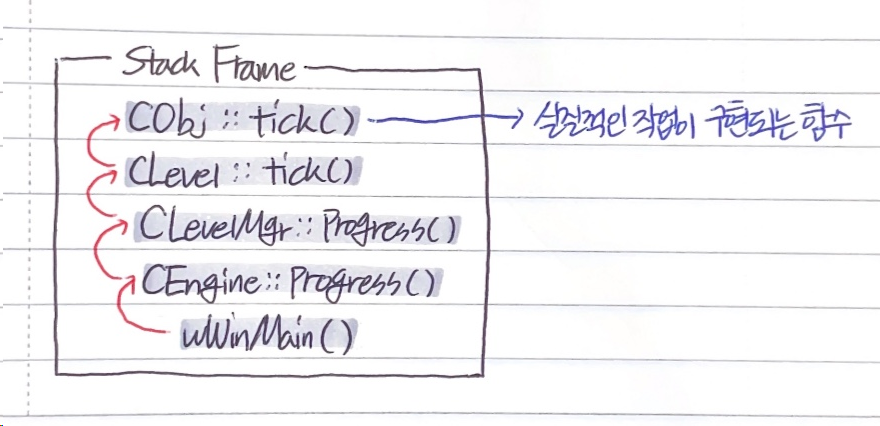 Stack Frame
CObj :: tick() → 실질적인 작업이 구현되는 함수
CLevel :: tick()
CLevelMgr :: Progress()
CEngine :: Progress()
wWinMain()